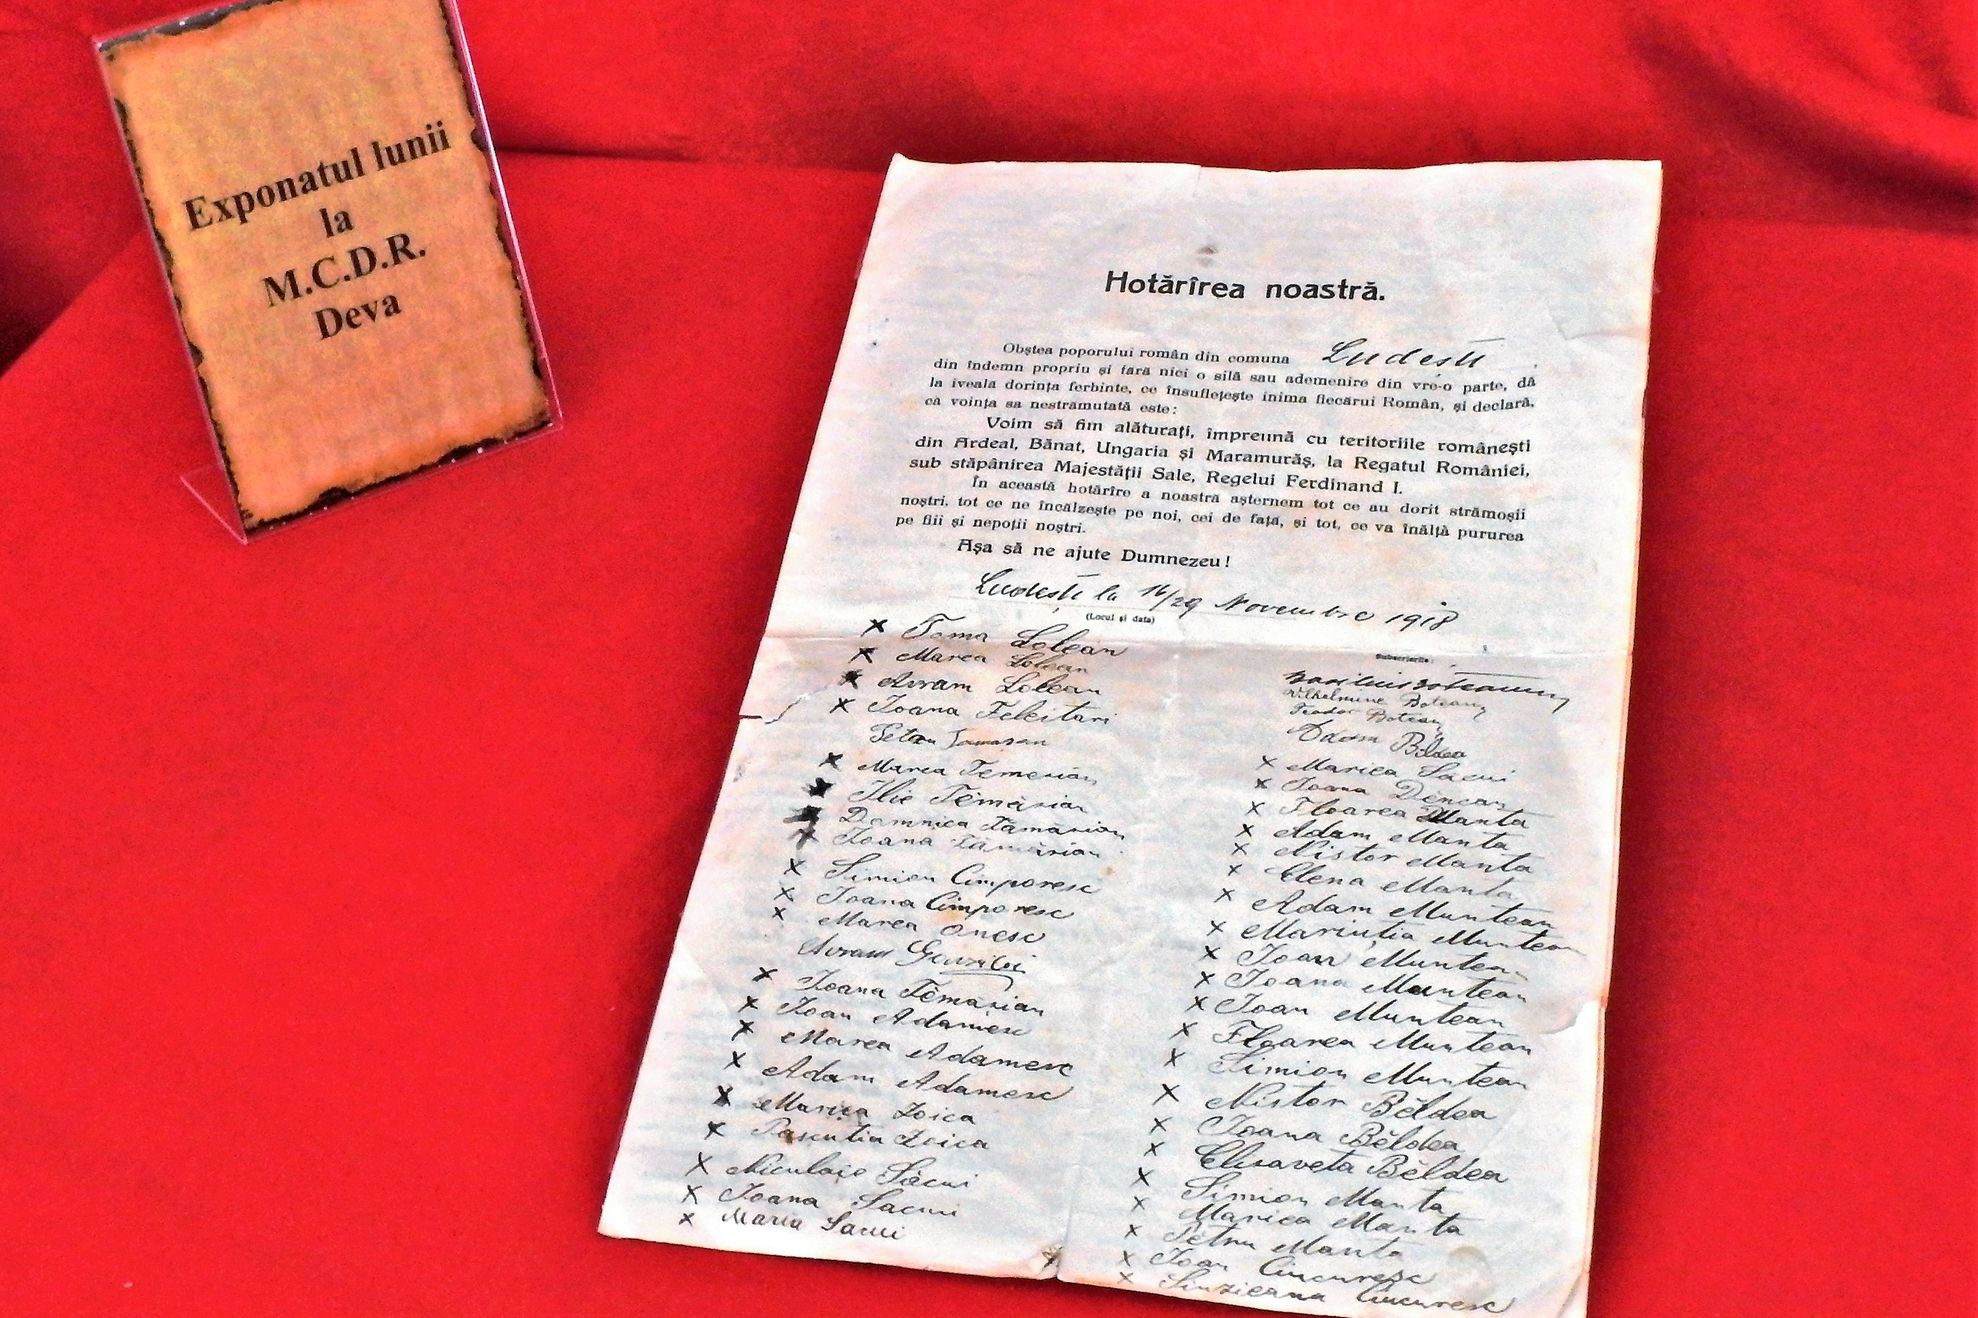 Exponatul lunii
la
M.C.D.R.
Deva
Hotărîrea noastră.
Obștea poporului român din comuna Ludești
din îndemn propriu și fără nici o silă sau ademenire din vre-o parte, dă
la iveală dorința ferbinte, ce însuflețește inima fiecărui Român, și declară,
că voința sa nestrămutată este:
Voim să fim alăturați, împreună cu teritoriile românești
din Ardeal, Bănat, Ungaria și Maramurăș, la Regatul României,
sub stăpânirea Majestății Sale, Regelui Ferdinand I.
În această hotărîre a noastră așternem tot ce au dorit strămoșii
noștri, tot ce ne încălzește pe noi, cei de față, și tot, ce va înălță pururea
pe fiii și nepoții noștri.
Așa să ne ajute Dumnezeu!
Ludești la 16/29 Novembre 1918
(Locul și data)
x Toma Lolean
x Marea Lolean
x Avram Lolean
x Ioana Felcitari
x Marea Temerian
x Ilie Temărian
x Domnica Tămărian
x Ioana Tămărian
x Simion Cimporesc
x Ioana Cimporesc
x Marea Onesc
Avram
x Ioana Temarian
x Ioan Adamesc
x Marea Adamesc
x Adam Adamesc
x Marica Zoica
x Pascutia Zoica
x Niculaie Săcui
x Ioana Sacui
x Maria Sacui
Subscrierile:
Wilhelmine Botean
Teodor Botean
Adam Bĕldea
x Marica Sacui
x Ioana Dencan
x Floarea Manta
x Adam Manta
x Nistor Manta
x Elena Manta
x Adam Muntean
x Mariuția Muntean
x Ioan Muntean
x Ioana Muntean
x Ioan Muntean
x Floarea Muntean
x Simion Muntean
x Nistor Bĕldea
x Ioana Bĕldea
x Elisaveta Bĕldea
x Simion Manta
x Marica Manta
x Petru Manta
x Ioan Ciucuresc
x Sinzieana Ciucuresc